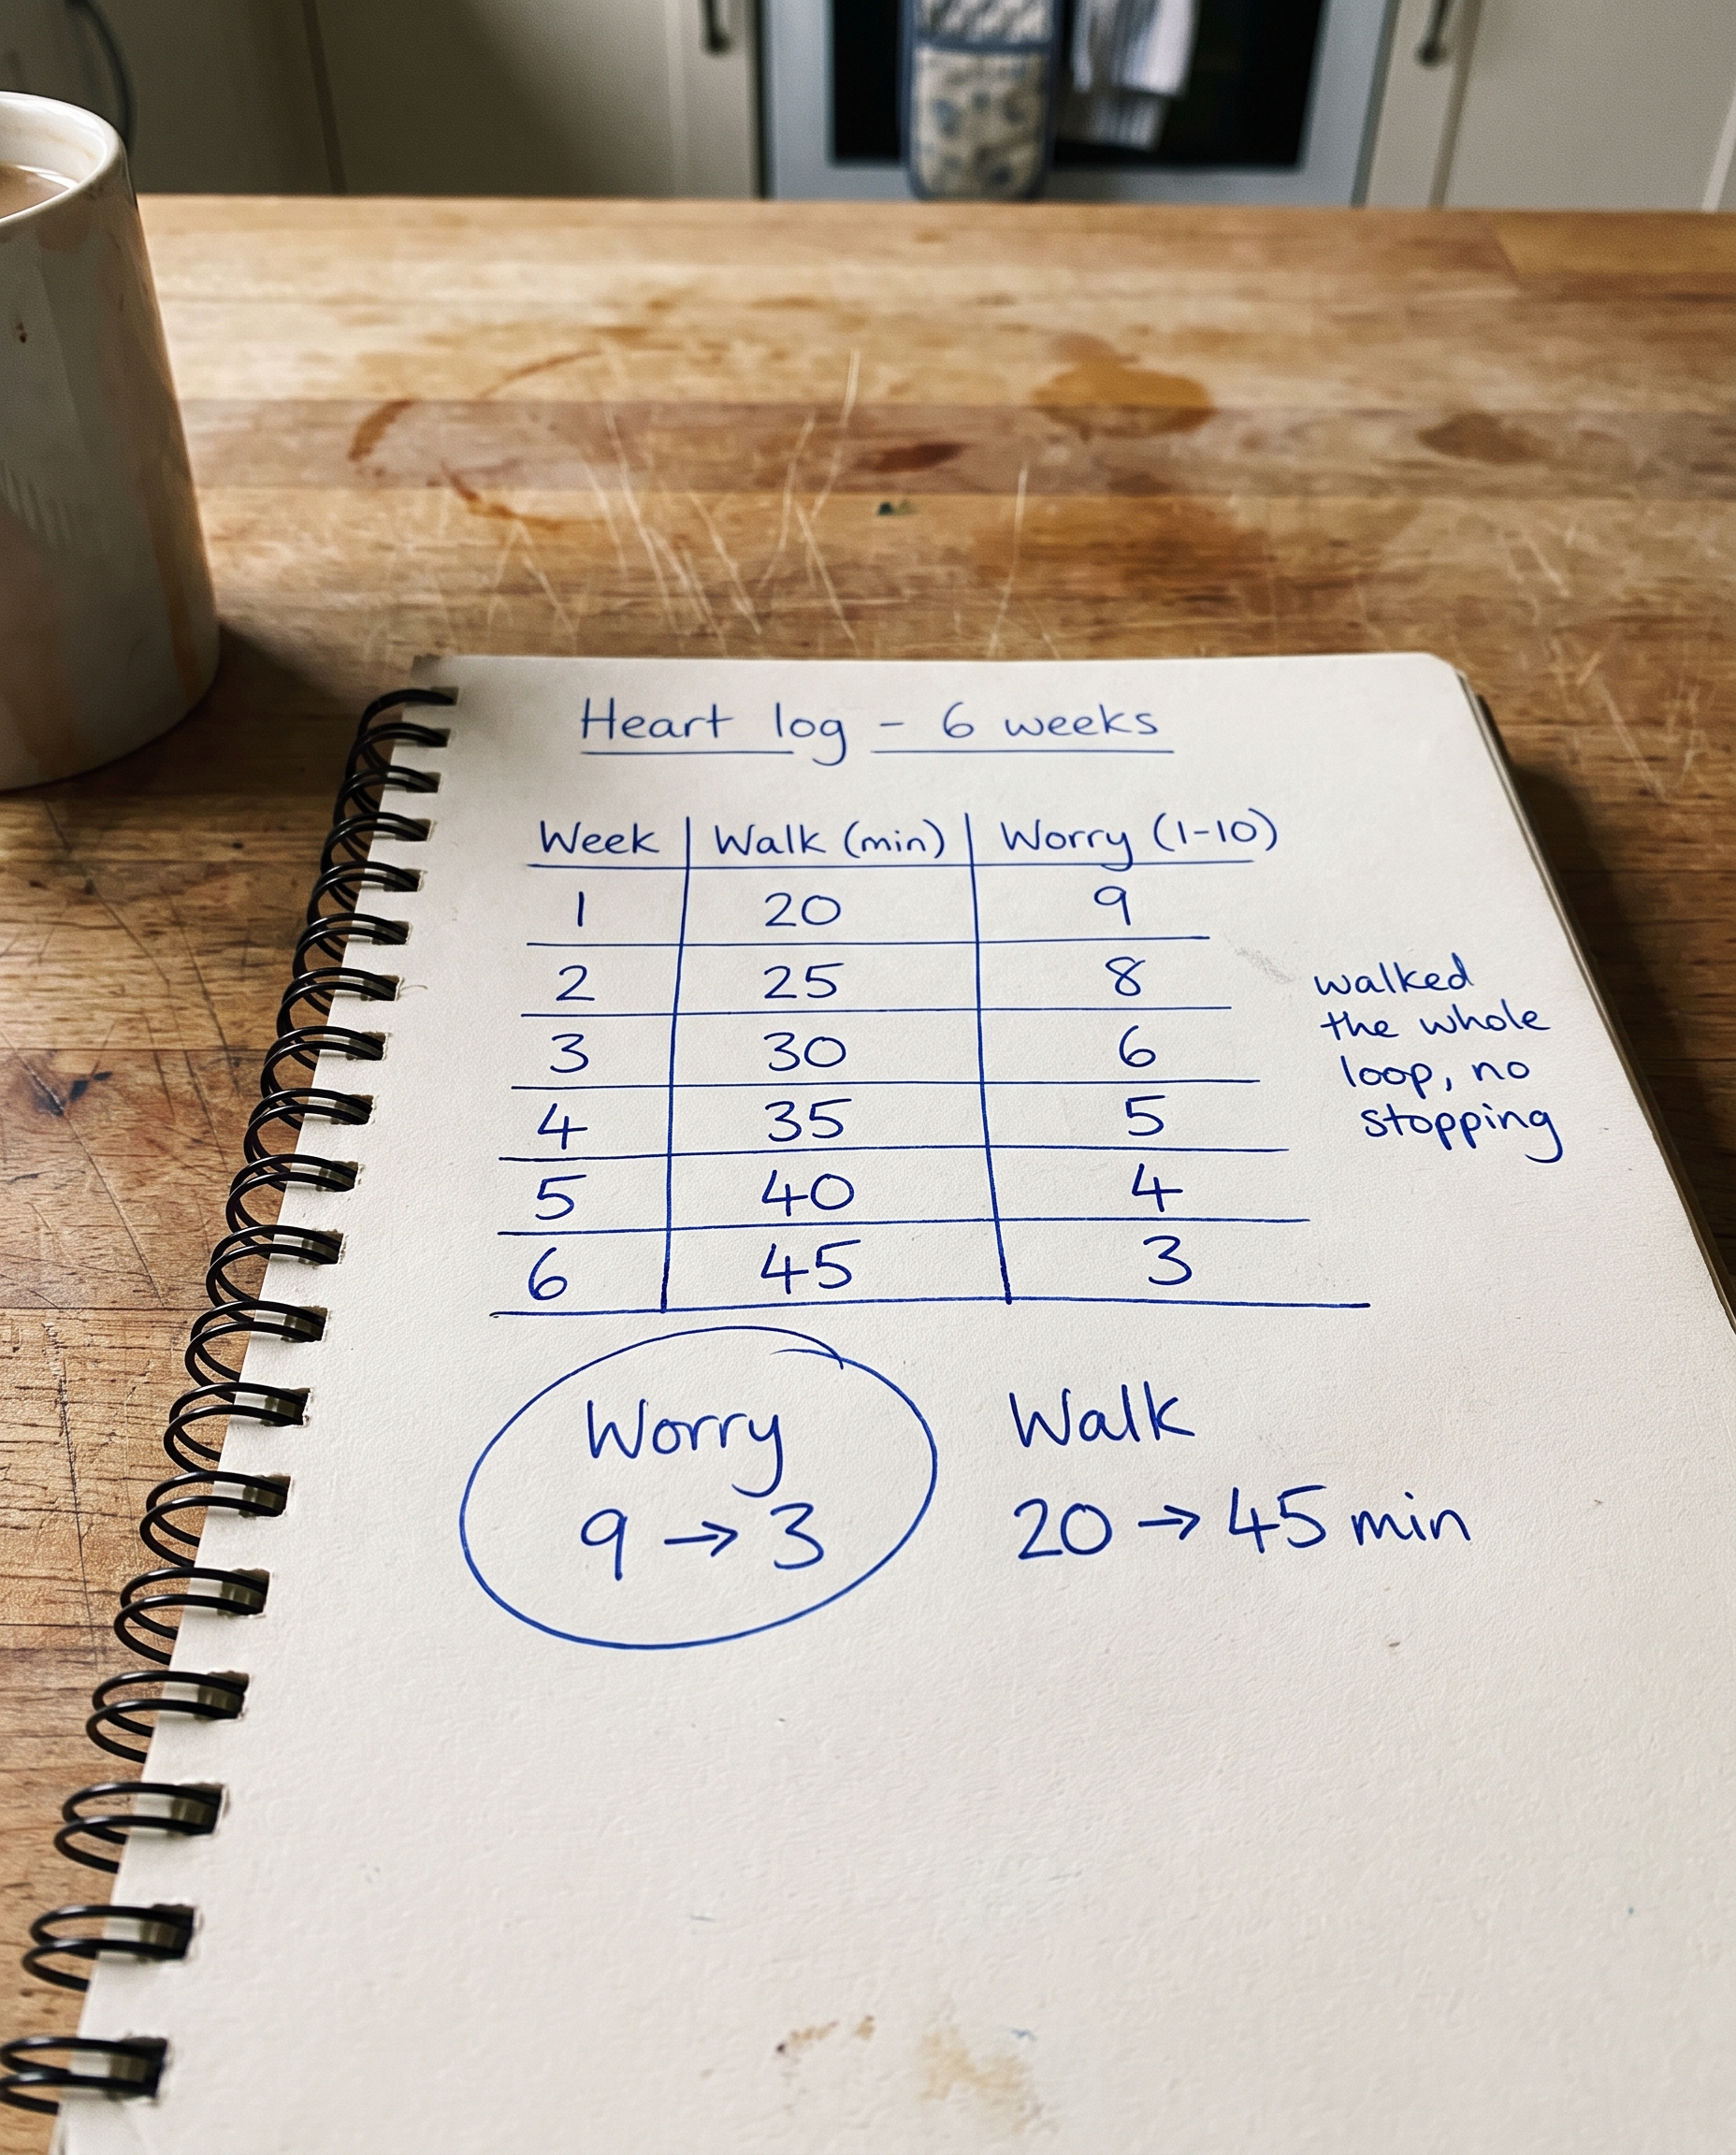 Heart log - 6 weeks
Week Walk (min) Worry (1-10)
1 20 9
2 25 8
3 30 6
4 35 5
5 40 4
6 45 3
walked
the whole
loop, no
stopping
Worry
9 → 3
Walk
20 → 45 min